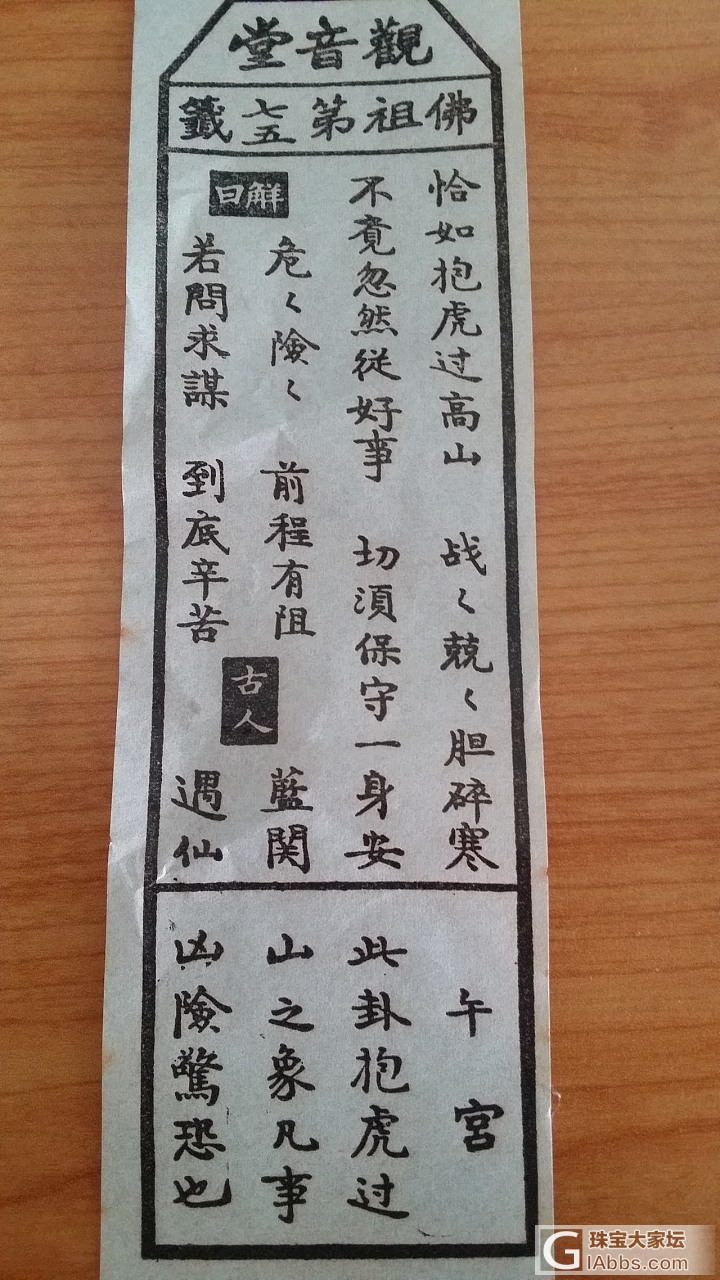 觀音堂
佛祖第七五籤
恰如抱虎过高山　战〻兢〻胆碎寒
不竟忽然従好事　切湏保守一身安
解曰
危〻險〻　前程有阻
若問求謀　到底辛苦
古人
藍関
遇仙
午宮
此卦抱虎过
山之象凡事
凶險驚恐也
珠宝大家坛
GIAbbs.com